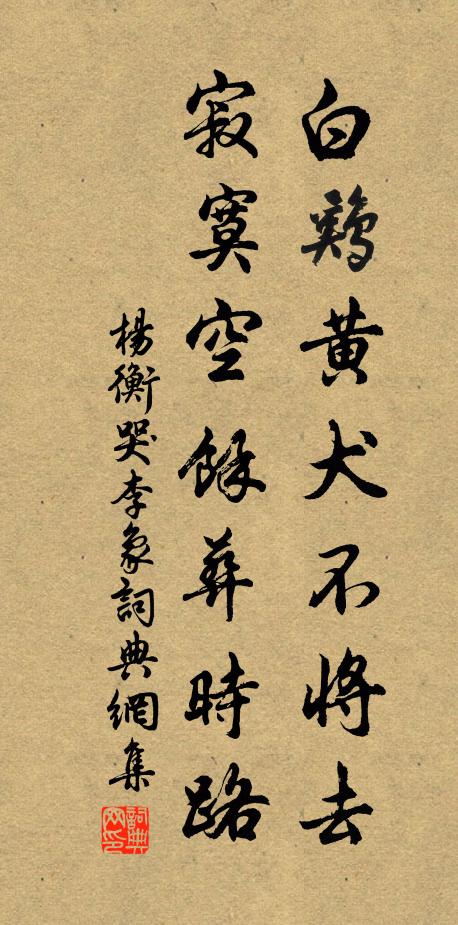 白鷄黄犬不將去
寂寞空餘葬時路
楊衡哭李象詞典網集
詞典網印